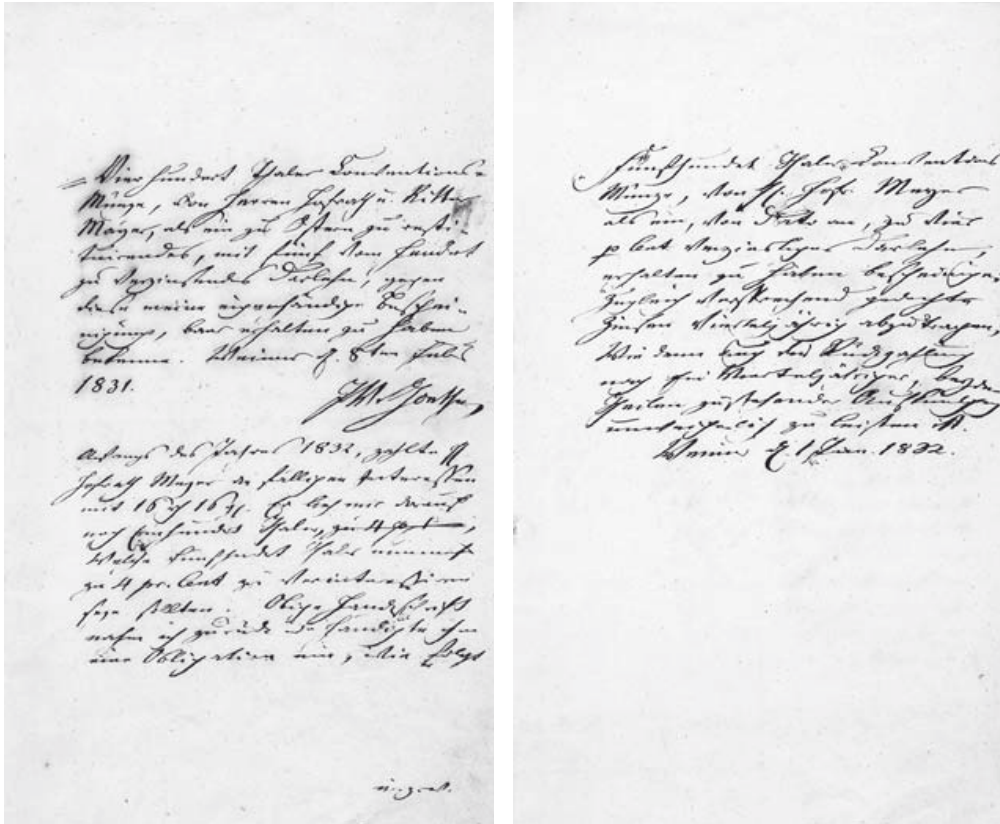 Vierhundert Thaler Conventions-
Münze, von Herren Hofrath u. Ritter
Mayer, als ein zu Ostern zu resti-
tuirendes, mit fünf vom Hundert
zu verzinsendes Darlehn, gegen
diese meine eigenhändige Beschei-
nigung, baar erhalten zu haben
bekenne. Weimar d. 8ten Juli
1831.
JWvGoethe
Anfangs des Jahres 1832, zahlte
Hofrath Meyer die fälligen Interessen
mit 16 16 Er lieh mir darauf
noch Einhundert Thaler, zu 4
welche Fünfhundert Thaler nunmehr
zu 4 pro Cent zu verinteressiren
seyn sollten. Obige Handschrift
nahm ich zurück und händigte ihm
eine Obligation ein, wie folgt
u.z.w.
Fünfhundert Thaler Conventions
Münze, von H. Hofr. Meyer
als ein, von Dato an, zu vier
p Cent verzinsliches Darlehn,
erhalten zu haben bescheinige,
zugleich versprechend gedachte
Zinsen vierteljährig abzutragen,
wie denn auch die Rückzahlung
nach vierteljähriger, beyden
Theilen zustehender Aufkündigung
unweigerlich zu leisten ist.
Weimar d. 1 Jan. 1832.